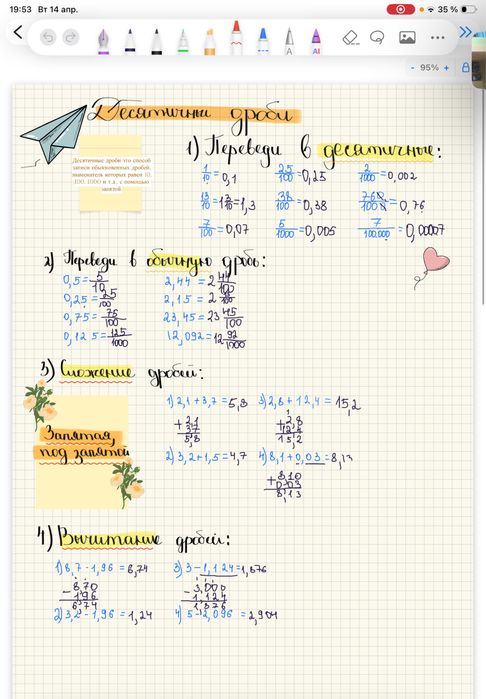 19:53 Вт 14 апр. 35 %
- 95% +
Десятичные дроби
Десятичные дроби это способ
записи обыкновенных дробей,
знаменатель которых равен 10,
100, 1000 и т.д., с помощью
запятой
1) Переведи в десятичные:
1/10=0,1 25/100=0,25 2/1000=0,002
13/10=1 3/10=1,3 38/100=0,38 760/1000=0,76
7/100=0,07 5/1000=0,005 7/100.000=0,00007
2) Переведи в обычную дробь:
0,5=5/10 2,44=2 44/100
0,25=25/100 2,15=2
0,75=75/100 23,45=23 45/100
0,125=125/1000 12,092=12 92/1000
3) Сложение дробей:
Запятая,
под запятой
1) 2,1+3,7=5,8 3) 2,8+12,4=15,2
+2,1 +2,8
3,7 12,4
5,8 15,2
2) 3,2+1,5=4,7 4) 8,1+0,03=8,13
+8,10
0,03
8,13
4) Вычитание дробей:
1) 8,7-1,96=8,74 3) 3-1,124=1,876
-8,70 -3,000
1,96 1,124
6,74 1,876
2) 3,2-1,96=1,24 4) 5-2,096=2,904